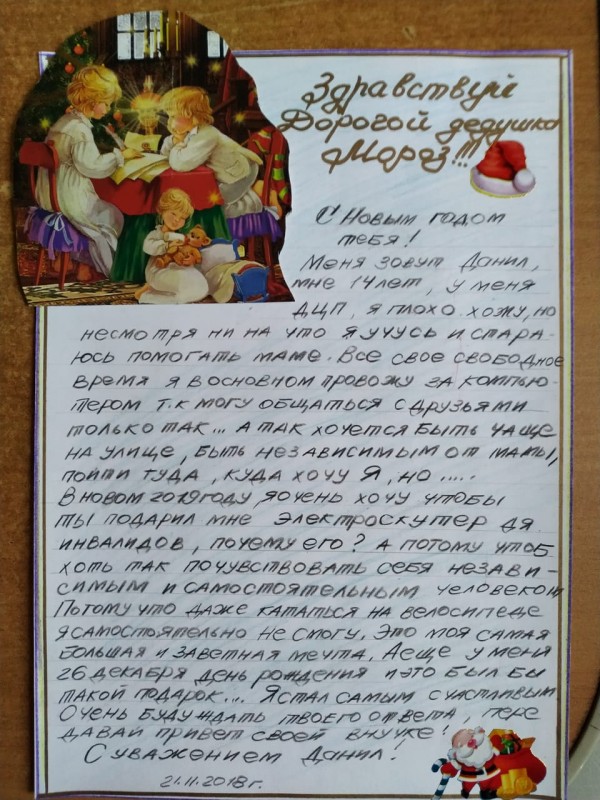 Здравствуй
Дорогой дедушка
Мороз!!!
С Новым годом
тебя!
Меня зовут Данил,
мне 14 лет, у меня
ДЦП, я плохо хожу, но
несмотря ни на что я учусь и стара-
юсь помогать маме. Все свое свободное
время я в основном провожу за компью-
тером т.к могу общаться с друзьями
только так... а так хочется быть чаще
на улице, быть независимым от мамы,
пойти туда, куда хочу я, но.....
В новом 2019 году я очень хочу чтобы
ты подарил мне электроскутер дя
инвалидов, почему его? а потому чтоб
хоть так почувствовать себя незави-
симым и самостоятельным человеком
Потому что даже кататься на велосипеде
я самостоятельно не смогу, это моя самая
большая и заветная мечта, А еще у меня
26 декабря день рождения и это был бы
такой подарок.... Я стал самым счастливым
Очень буду ждать твоего ответа, пере
давай привет своей внучке!
С уважением Данил!
21.11.2018 г.